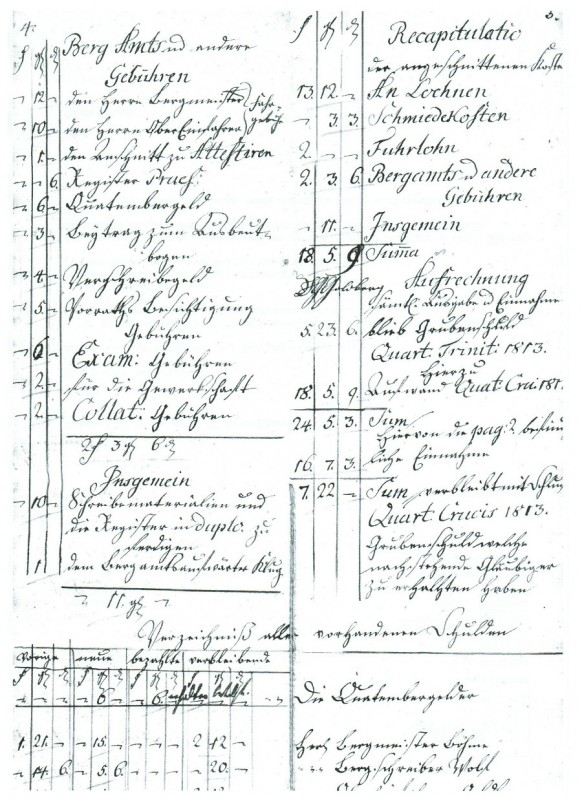 4.
f gl d
Berg Amts und andere
Gebühren
- 12 - den Herrn Bergmeister
Fahr-
gebühr
- 10 - den Herrn OberEinfahrer
- 1 - den Anschnitt zu Attestiren
- - 6. Register Praes:
- 6 - Quatembergeld
- 3 - Beytrag zum Ausbeut-
bogen
- 4 - Verschreibegeld
- 5 - Vorraths Besichtigung
Gebühren
- 6 - Exam: Gebühren
- 2 - für die Gewerkschaft
- 2 - Collat: Gebühren
2f 3 gl 6 d
Insgemein
- 10 - Schreibematerialien und
die Register in duplo zu
fertigen
1 dem Bergamtsaufwärter Klug
- 11. gl -
5.
f gl d
Recapitulatio
der angeschnittenen Kosten
13. 12. - An Loehnen
- 3. 3. Schmiedekosten
2. - - Fuhrlohn
2. 3. 6. Bergamts und andere
Gebühren
- 11. - Insgemein
18. 5. 9. Summa
Aufrechnung
sämtl: Ausgabe u Einnahme
5. 23. 6. blieb Grubenschuld
Quart. Trinit: 1813.
Hierzu
18. 5. 9. Aufwand Quat: Cruc: 181.
24. 5. 3. Sum
Hiervon die pag: 2. befind
16. 7. 3. liche Einnahme
7. 22 - Sum verbleibt mit Schluß
Quart. Crucis 1813.
Grubenschuld welche
nachstehende Gläubiger
zu erhalten haben
Verzeichniß aller vorhandenen Schulden
vorige neue bezahlte verbleibende
f gl d gl d f gl d f gl d
- - - - 6 - - 6. - - - Die Quatembergelder
1. 21. - - 15. - - - - 2 12 - Herr Bergmeister Böhme
- 14. 6. - 5. 6. - - - - 20. - Bergschreiber Wolf